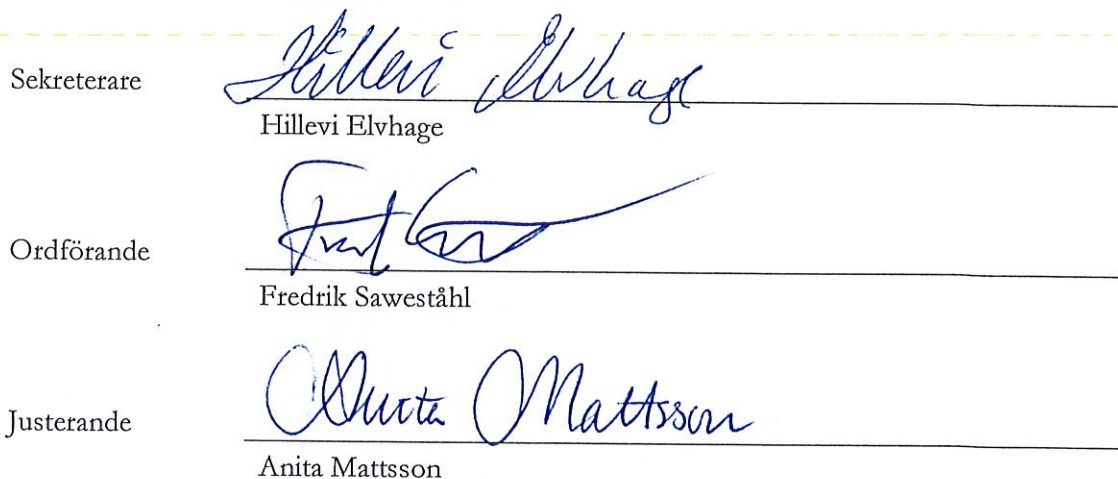 Sekreterare
Hillevi Elvhage
Hillevi Elvhage
Ordförande
Fredrik Sawestähl
Justerande
Anita Mattsson
Anita Mattsson